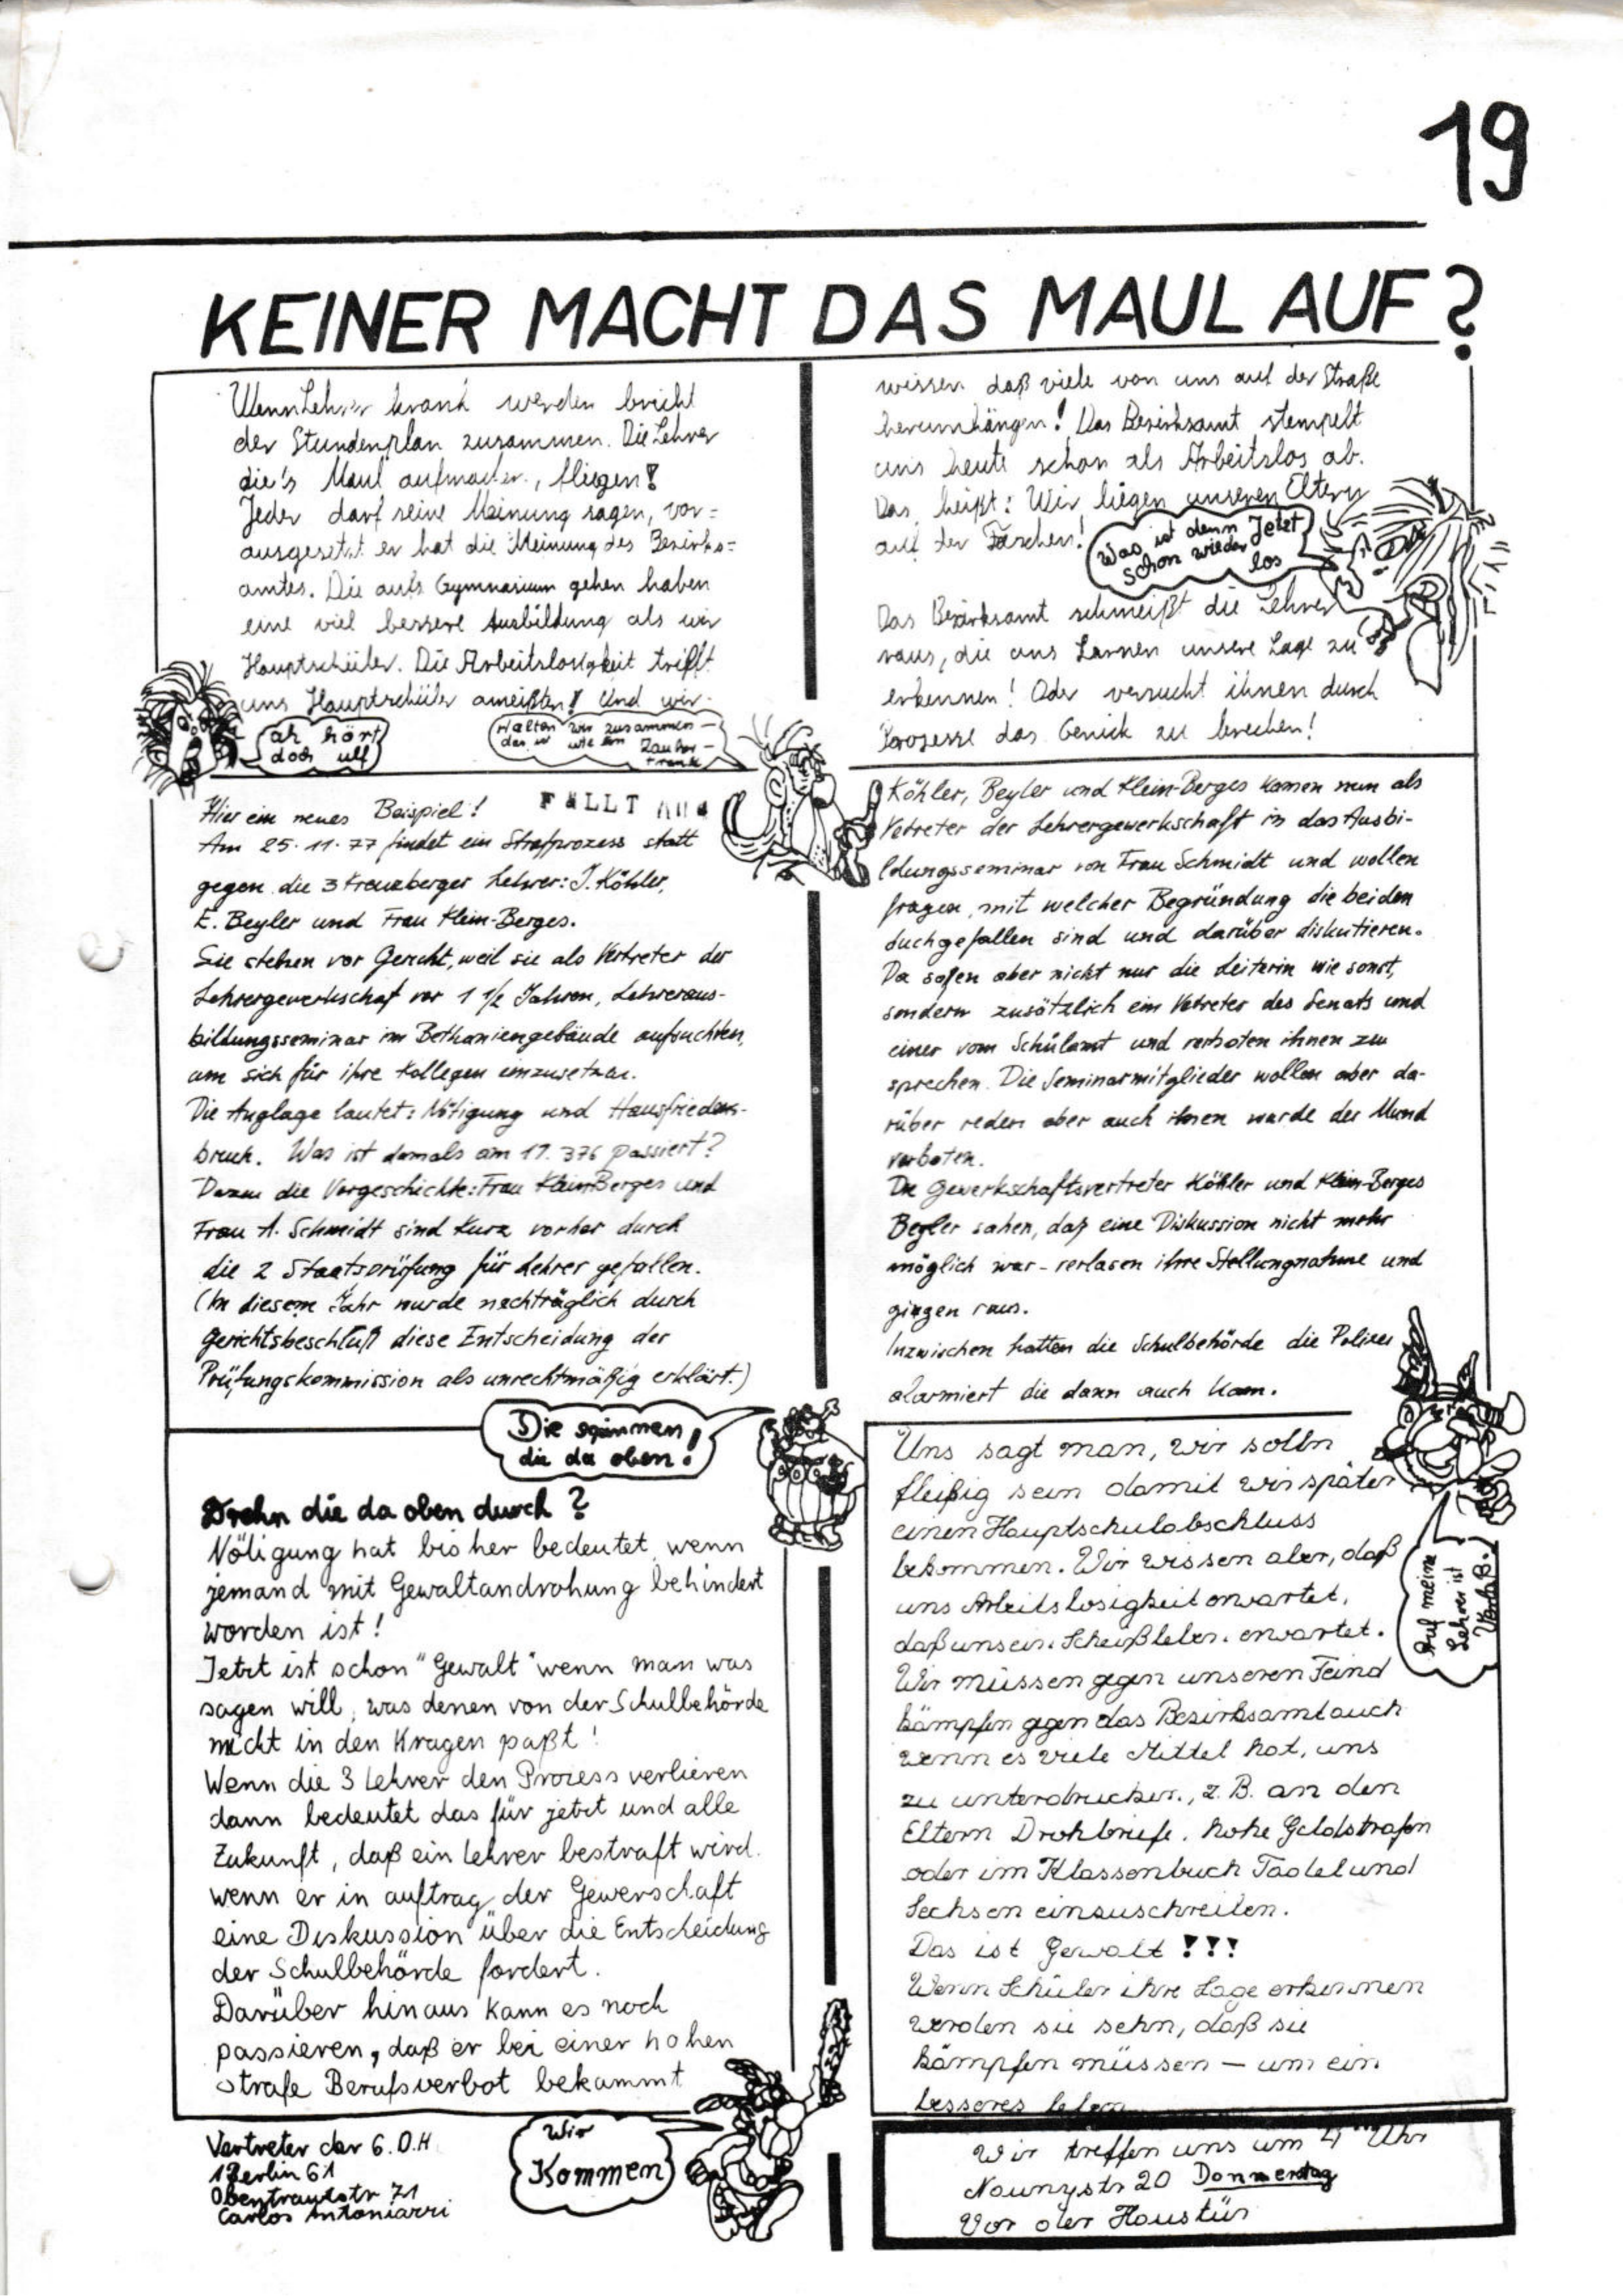 19
KEINER MACHT DAS MAUL AUF?
Wenn Lehrer krank werden bricht
der Stundenplan zusammen. Die Lehrer
die's Maul aufmachen, fliegen!
Jeder darf seine Meinung sagen, vor=
ausgesetzt er hat die Meinung des Bezirks=
amtes. Die aufs Gymnasium gehen haben
eine viel bessere Ausbildung als wir
Hauptschüler. Die Arbeitslosigkeit trifft
uns Hauptschüler ameißten! Und wir
ah hört
doch uff
Halten wir zusammen –
das ist wie ein Zauber –
trank
wissen daß viele von uns auf der Straße
herumhängen! Das Bezirksamt stempelt
uns heute schon als Arbeitslos ab.
Das heißt: Wir liegen unseren Eltern
auf den Taschen!
Was ist denn Jetzt
schon wieder
los
Das Bezirksamt schmeißt die Lehrer
raus, die uns Lernen unsere Lage zu
erkennen! Oder versucht ihnen durch
Prozesse das Genick zu brechen!
Hier ein neues Beispiel!
FÄLLT AUS
Am 25.11.77 findet ein Strafprozess statt
gegen die 3 Kreuzberger Lehrer: J. Köhler,
E. Beyler und Frau Klein-Berges.
Sie stehen vor Gericht, weil sie als Vertreter der
Lehrergewerkschaf vor 1 1/2 Jahren, Lehreraus-
bildungsseminar im Bethaniengebäude aufsuchten,
um sich für ihre Kollegen einzusetzen.
Die Anglage lautet: Nötigung und Hausfriedens-
bruch. Was ist damals am 17. 376 passiert?
Dazu die Vorgeschichte: Frau Klein-Berges und
Frau A. Schmidt sind kurz vorher durch
die 2 Staatsprüfung für Lehrer gefallen.
(In diesem Jahr wurde nachträglich durch
Gerichtsbeschluß diese Entscheidung der
Prüfungskommission als unrechtmäßig erklärt.)
Köhler, Beyler und Klein-Berges kamen nun als
Vetreter der Lehrergewerkschaft in das Ausbi-
ldungsseminar von Frau Schmidt und wollen
fragen, mit welcher Begründung die beiden
duchgefallen sind und darüber diskutieren.
Da saßen aber nicht nur die Leiterin wie sonst,
sondern zusätzlich ein Vetreter des Senats und
einer vom Schülamt und verboten ihnen zu
sprechen. Die Seminarmitglieder wollen aber da-
rüber reden aber auch ihnen wurde der Mund
verboten.
Die Gewerkschaftsvertreter Köhler und Klein-Berges
Beyler sahen, daß eine Diskussion nicht mehr
möglich war - verlasen ihre Stellungnahme und
gingen raus.
Inzwischen hatten die Schulbehörde die Polizei
alarmiert die dann auch kam.
Die spinnen
die da oben!
Drehn die da oben durch?
Nötigung hat bisher bedeutet, wenn
jemand mit Gewaltandrohung behindert
worden ist!
Jetzt ist schon "Gewalt" wenn man was
sagen will, was denen von der Schulbehörde
nicht in den Kragen paßt!
Wenn die 3 Lehrer den Prozess verlieren
dann bedeutet das für jetzt und alle
Zukunft, daß ein Lehrer bestraft wird.
wenn er in auftrag der Gewerschaft
eine Diskussion über die Entscheidung
der Schulbehörde fordert.
Darüber hinaus kann es noch
passieren, daß er bei einer hohen
Strafe Berufsverbot bekammt
Uns sagt man, wir solln
fleißig sein damit wir später
einen Hauptschulabschluss
bekommen. Wir wissen aber, daß
uns Arbeitslosigkeit erwartet,
daß uns ein Scheißleben erwartet.
Wir müssen gegen unseren Feind
kämpfen gegen das Bezirksamt auch
wenn es viele Mittel hat, uns
zu unterdrucken, z.B. an den
Eltern Drohbriefe, hohe Geldstrafen
oder im Klassenbuch Tadel und
Sechsen einzuschreiben.
Das ist Gewalt !!!
Wenn Schüler ihre Lage erkennen
werden sie sehn, daß sie
kämpfen müssen – um ein
besseres leben
Auf meine
Lehrer ist
Verlaß.
Vertreter der G.O.H
1 Berlin 61
Obentrautstr 71
Carlos Antoniazzi
Wir
Kommen
Wir treffen uns um 4 Uhr
Naunystr 20 Donnerstag
Vor der Haustür